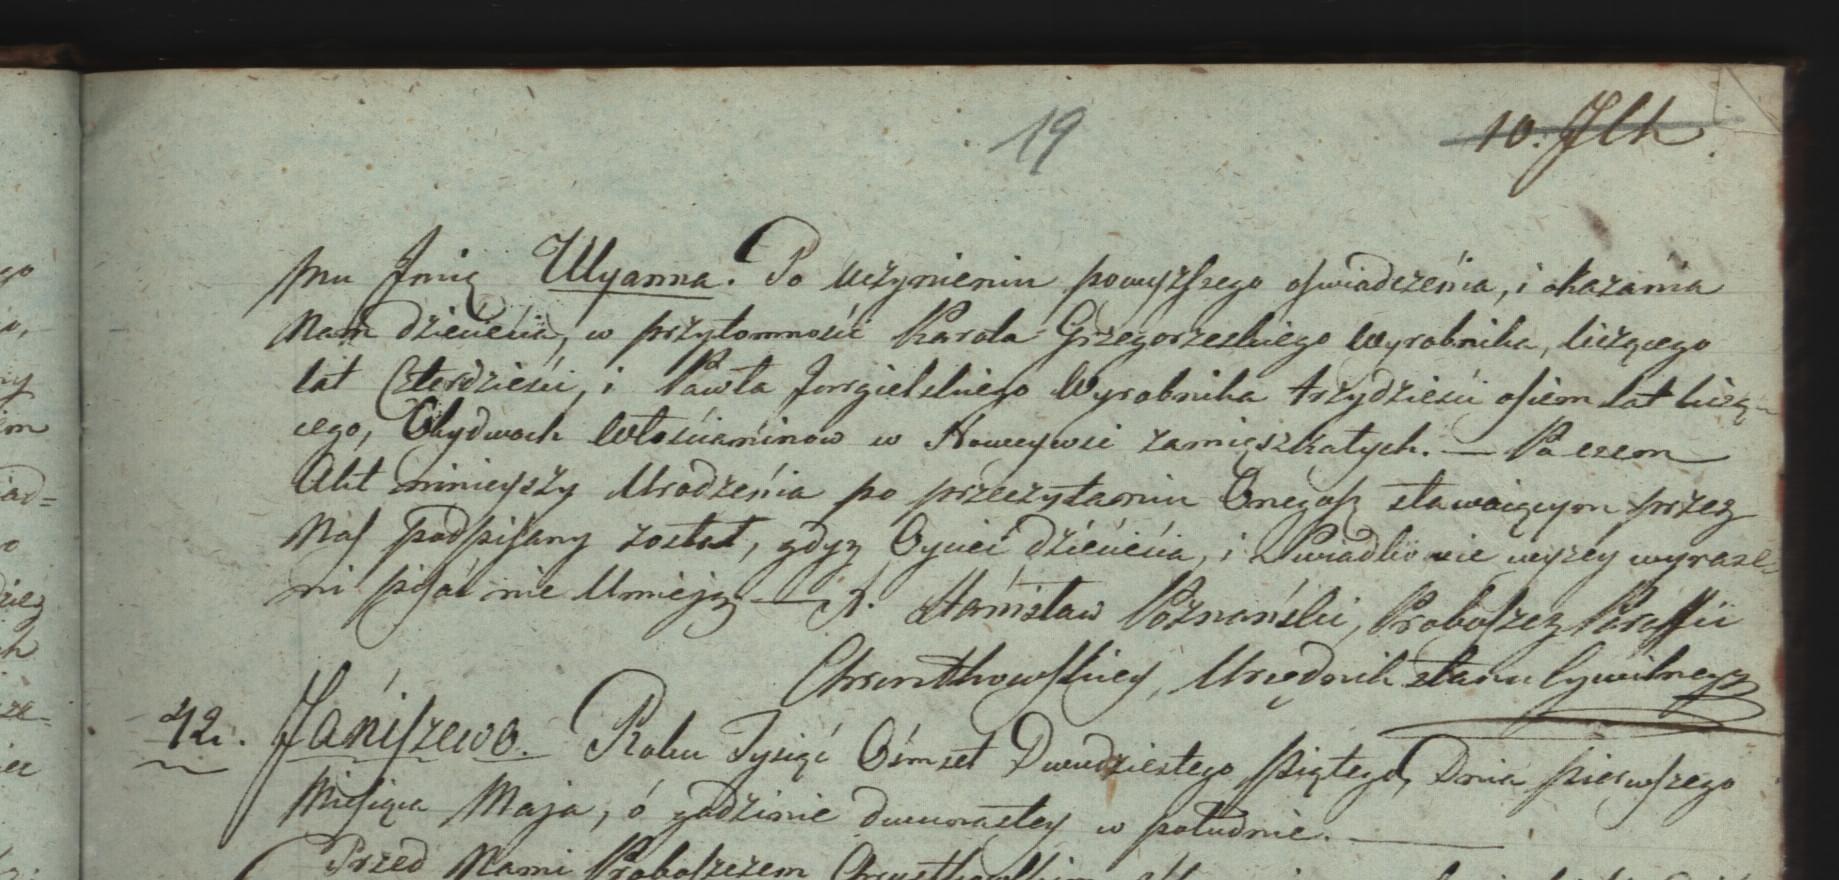 19
10. Jlh
mu Jmię Ulyanna. Po uczynieniu powyższego oswiadczenia, i okazania
Nam dziecięcia, w przytomności Karola Grzegorzeskiego Wyrobnika, liczącego
lat Czterdzieści, i Pawła Jurgielskiego Wyrobnika trzydzieści osiem lat liczą-
cego, Obydwoch Włościaninow w Noweywsi zamięszkałych. — Po czem
Akt ninieyszy Urodzenia po przeczytaniu Onegoż stawaiącym przez
Nas podpisany został, gdyż Oyciec dziecięcia, i Swiadkowie wyzey wyraże-
ni pisać nie Umieją — X. Stanisław Poznański, Proboszcz Parafii
Chrustkowskiey, Urzędnik stanu Cywilnego
42. Janiszewo. Roku Tysiąc Osmset Dwudziestego Piątego, Dnia pierwszego
Miesiąca Maja, o godzinie dwunastey w południe. —
Przed Nami Proboszczem